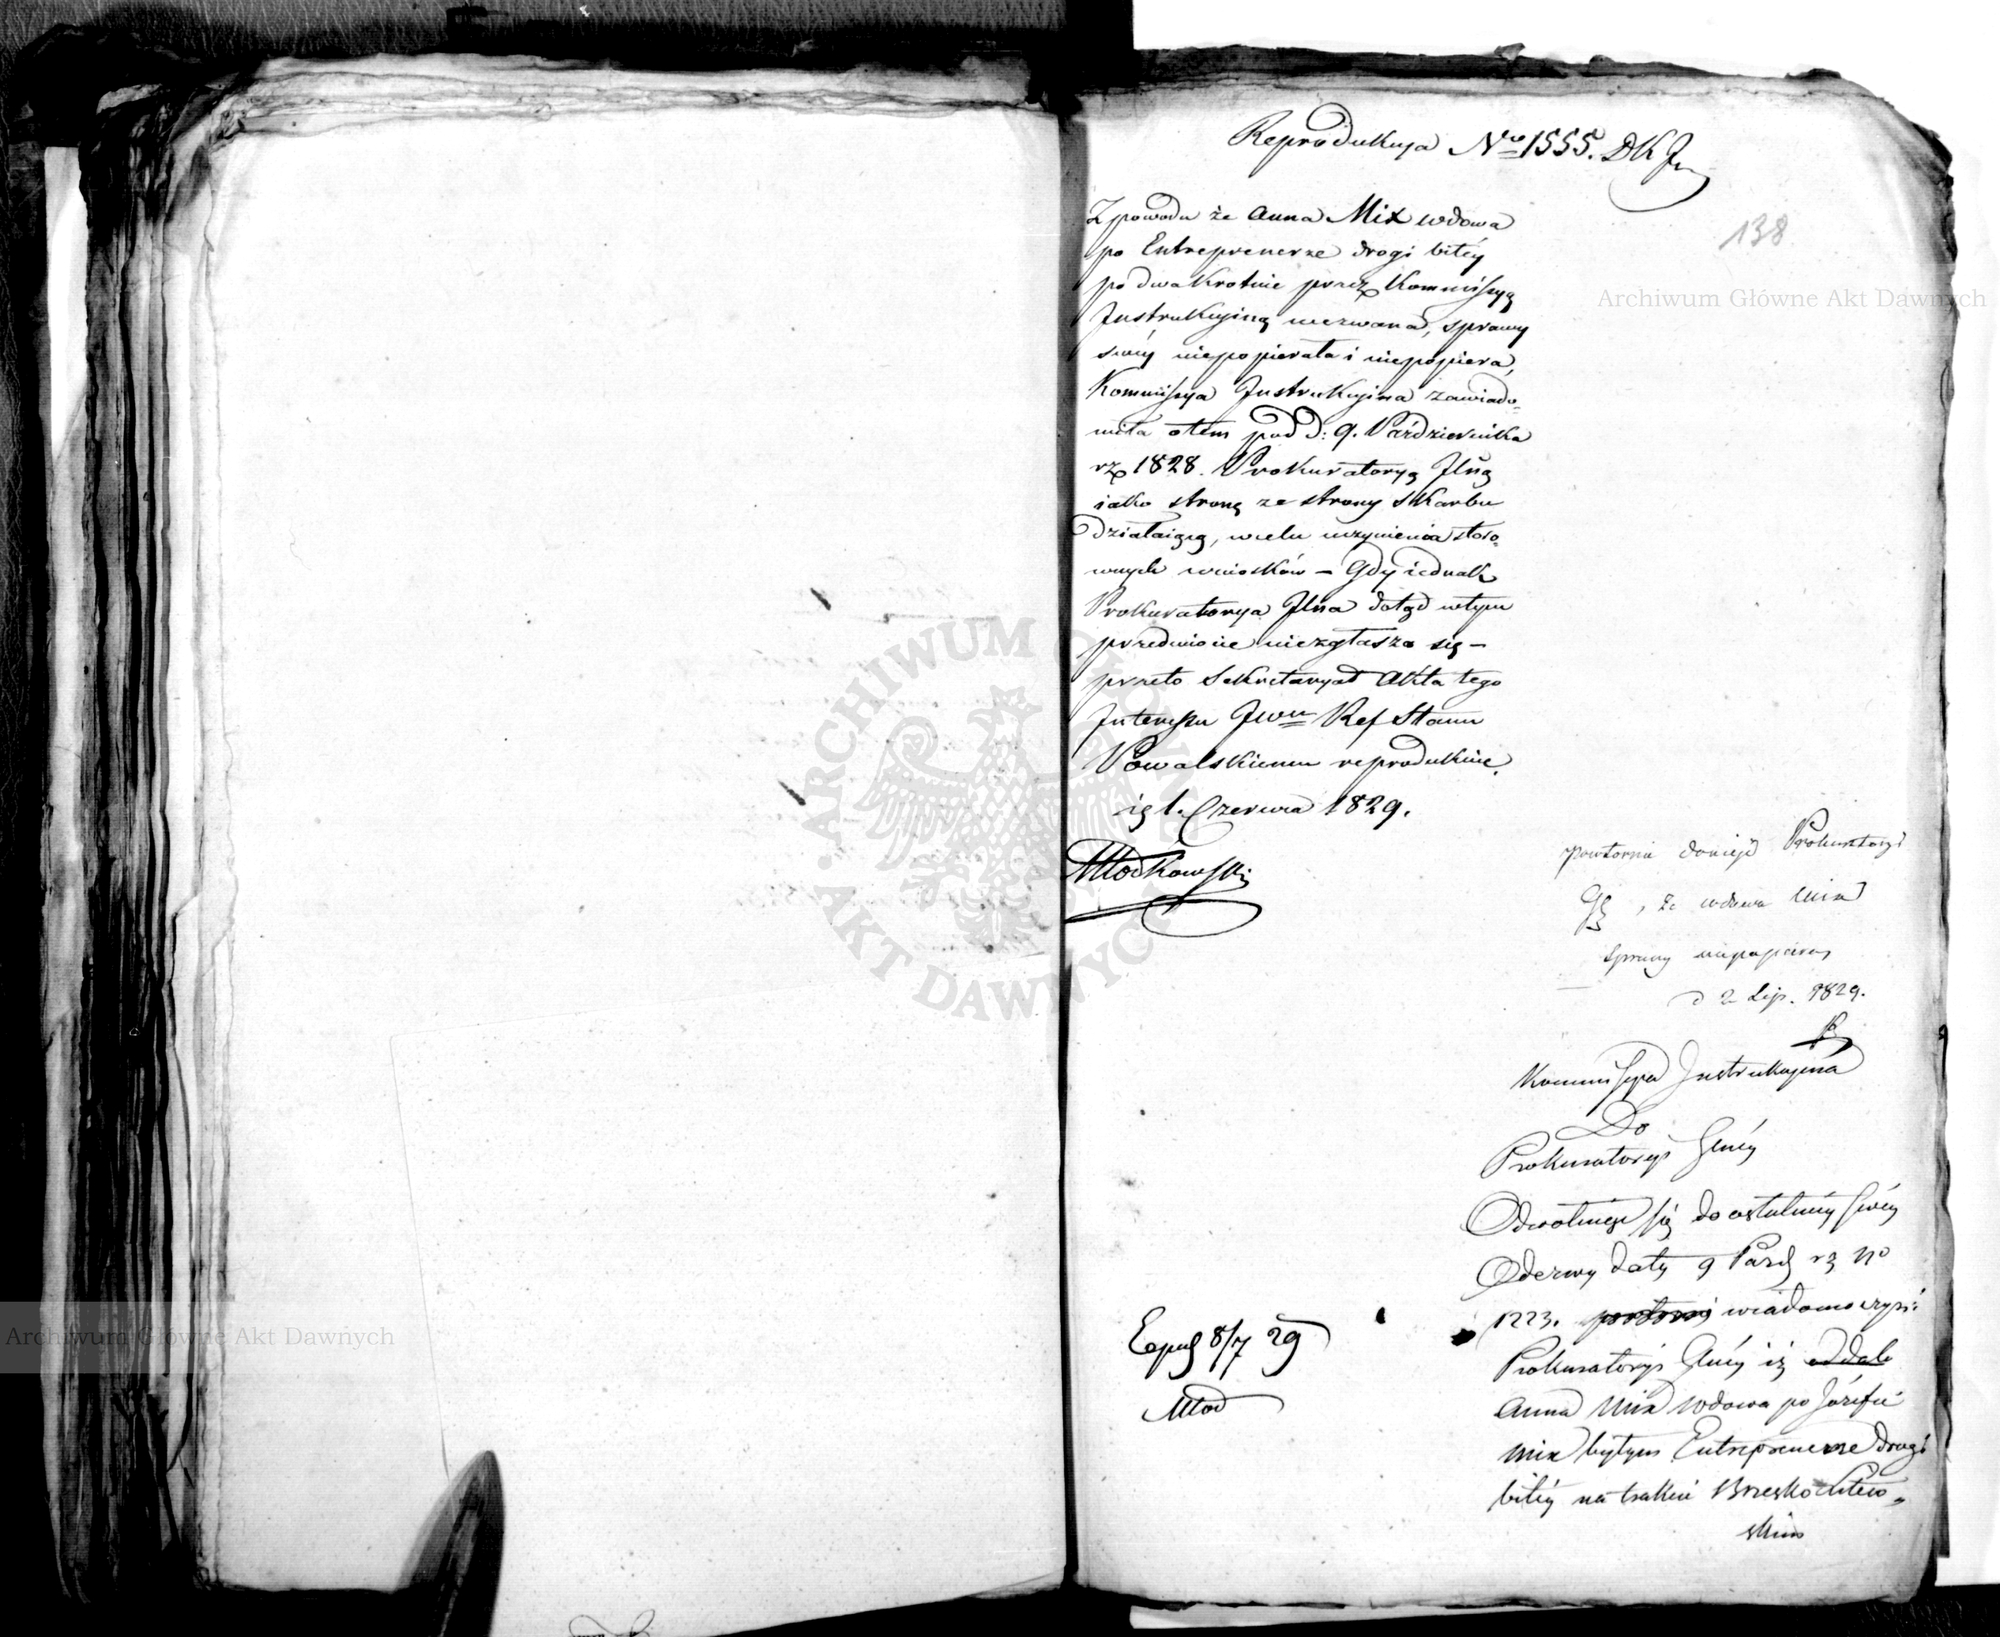 Reprodukcya Nro 1555. DKJ
138
Z powodu że Anna Mix wdowa
po Entreprenerze drogi bitéy
po dwa Krotnie przez Kommissyą
Instrukcyiną wezwana, sprawy
swéy niepopierała i niepopiera,
Kommissya Instrukcyina zawiado-
miła otem pod d: 9. Października
rz 1828. Prokuratoryą Jlną
iako stronę ze strony Skarbu
działaiącą, w celu uczynienia stoso-
wnych wniosków – Gdy iednak
Prokuratorya Jlna dotąd w tym
przedmiocie niezgłasza się –
przeto Sekretaryat Akta tego
Interessu Jwu Ref Stanu
Powalskiemu reprodukuie.
1. Czerwca 1829.
Młodkowski
powtornie donieść Prokuratoryi
, że wdowa Mix
sprawy niepopiera
d 2 Lip. 1829.
Kommissya Instrukcyina
Do
Prokuratoryi Gnéy
Odwołuiąc się do ostatniéy swéy
Odezwy daty 9 Paźd rz No
1223. wiadomo czyni
Prokuratoryi Gnéy iż
Anna Mix wdowa po Józefie
Mix byłym Entreprenerze drogi
bitéy na trakcie Brzesko Litew-
skim
Exped 8/7 29
Młod
Archiwum Główne Akt Dawnych
Archiwum Główne Akt Dawnych
ARCHIWUM GŁÓWNE AKT DAWNYCH